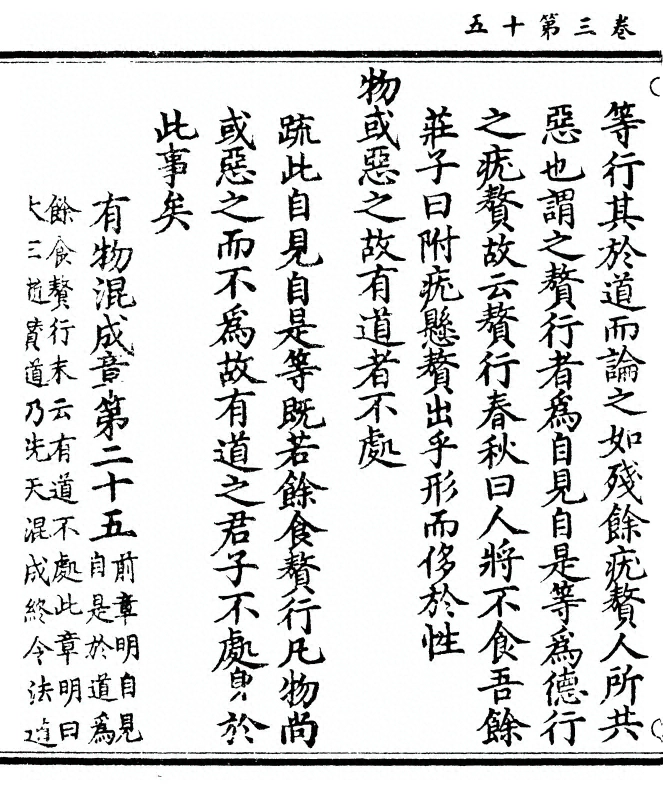 卷三第十五
等行其於道而論之如殘餘疣贅人所共
惡也謂之贅行者爲自見自是等爲德行
之疣贅故云贅行春秋曰人將不食吾餘
莊子曰附疣懸贅出乎形而侈於性
物或惡之故有道者不處
疏此自見自是等既若餘食贅行凡物尚
或惡之而不爲故有道之君子不處身於
此事矣
有物混成章第二十五
前章明自見
自是於道爲
餘食贅行末云有道不處此章明曰
道乃先天混成終令法道